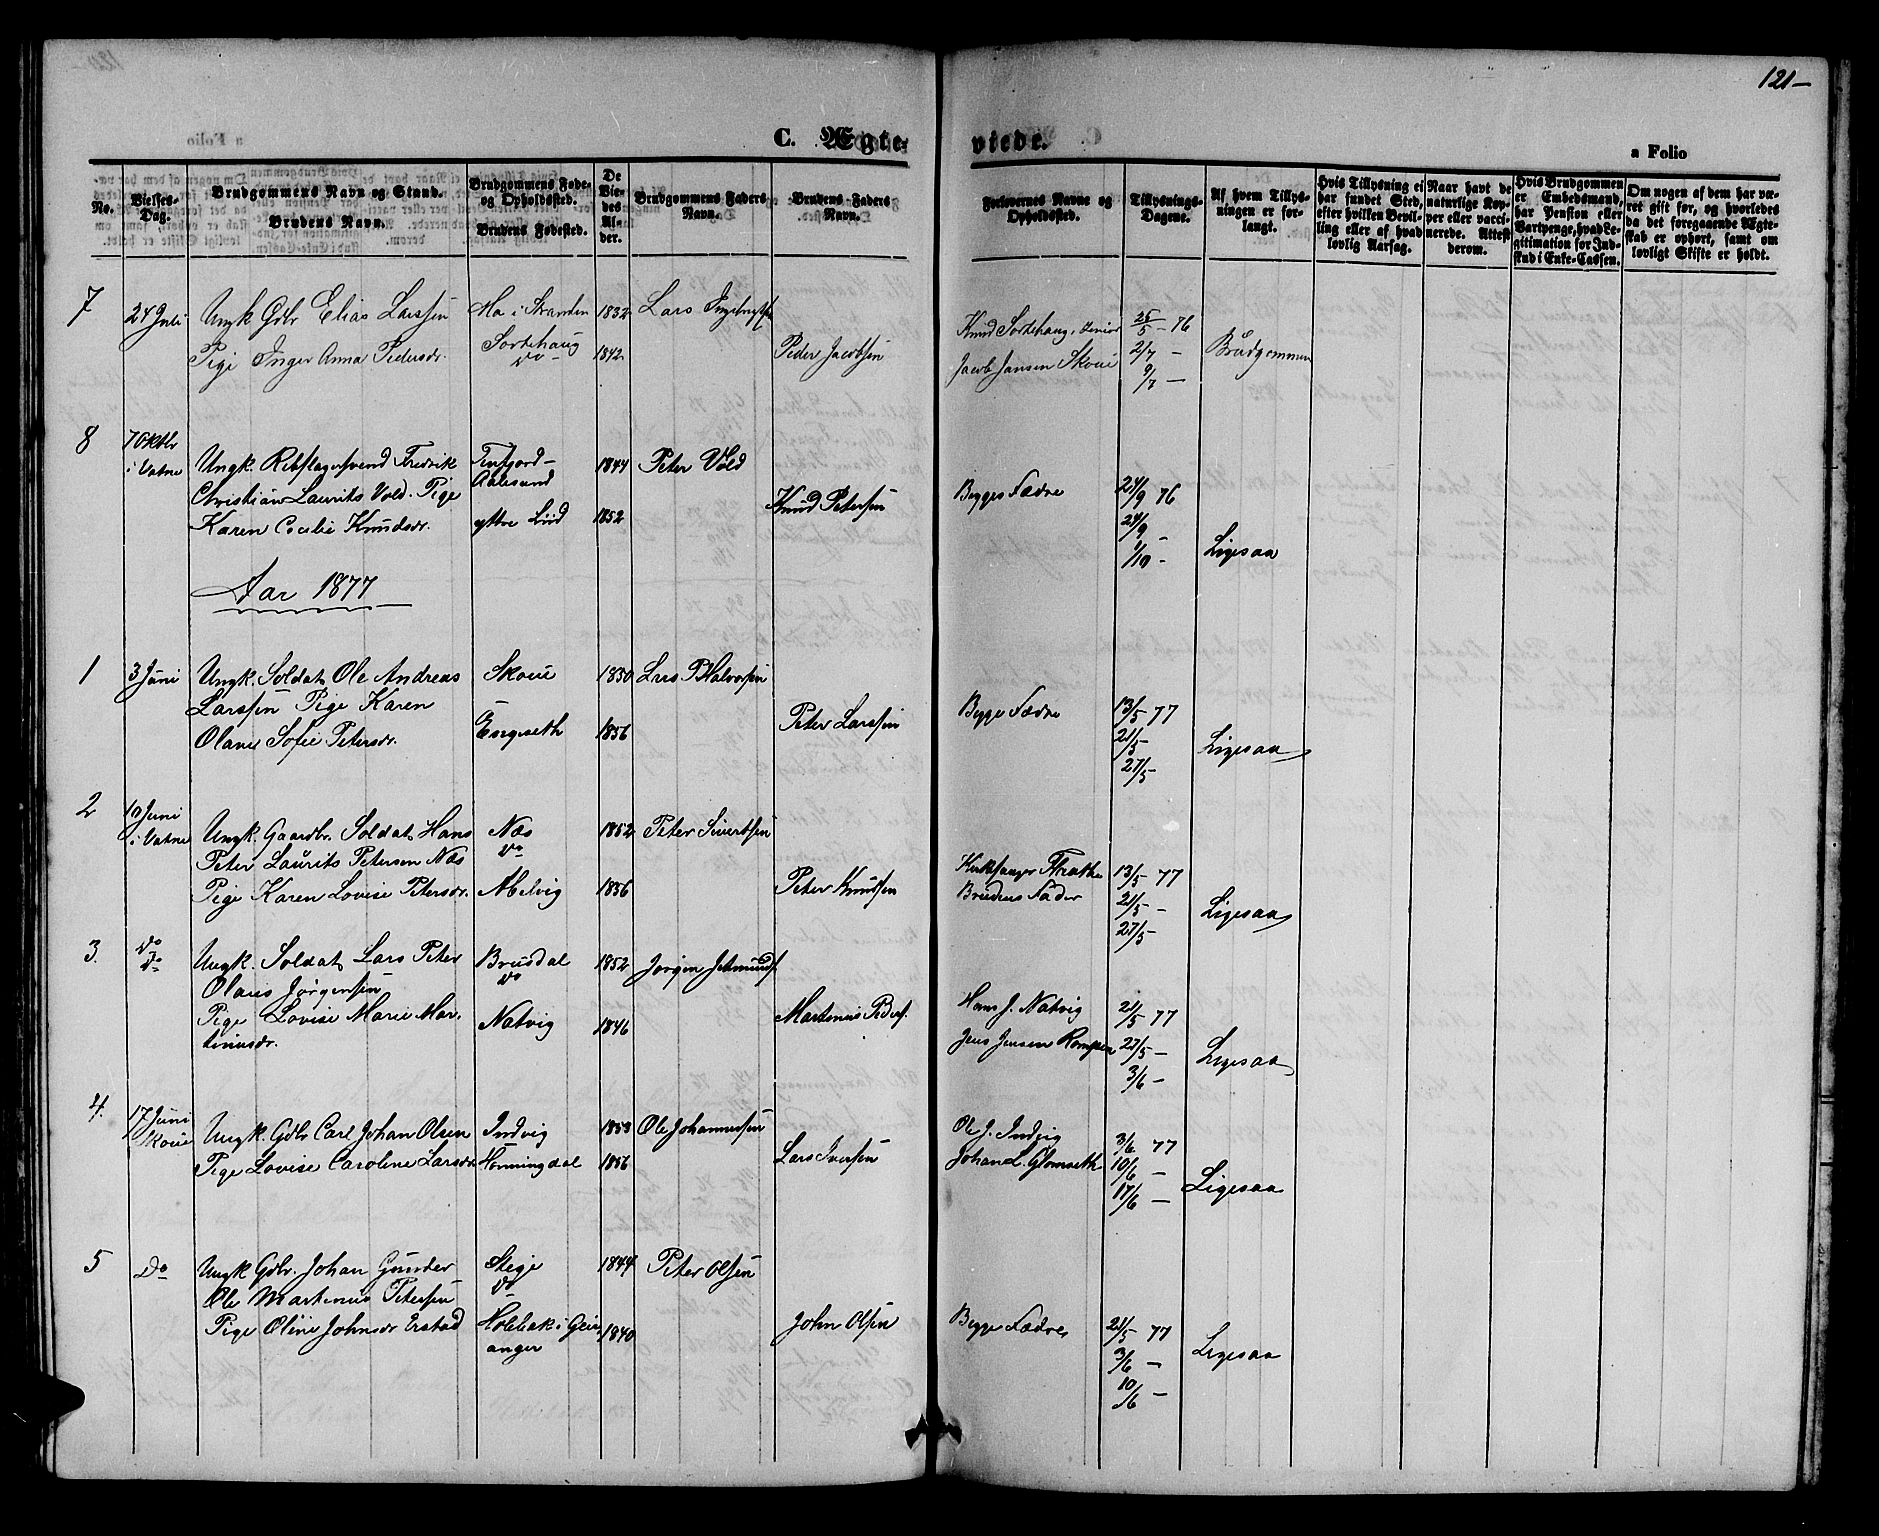 121-
C. Ægte-
viede.
a Folio
No.
Vielses-Dag.
Brudgommens Navn og Stand.
Brudens Navn.
Brudgommens Føde- og Opholdssted.
Brudens Fødested.
De Viedes Alder.
Brudgommens Faders Navn.
Brudens Faders Navn.
Forlovernes Navne og Opholdssted.
Tillysnings-Dagene.
Af hvem Tillysningen er forlangt.
Hvis Tillysning ei har fundet Sted, efter hvilken Bevilling eller af hvad lovlig Aarsag.
Naar havt de naturlige Kopper eller vaccinerede. Attest derom.
Hvis Brudgommen er Embedsmand, har Pension eller Vartpenge, hvad Legitimation for Indskud i Enke-Cassen.
Om nogen af dem har været gift før, og hvorledes da det foregaaende Ægteskab er ophørt, samt om lovligt Skifte er holdt.
7 24 Juli Ungk Gdbr Elias Larssen Mo i Stranden 1832 Lars
Pige Inger Anna Pedersdr. Sortehaug 1842 Peder Jacobsen
Do
Knud Sortehaug, senior 25/5 - 76
Jacob Jansen Skoue 2/7 - Brudgommen
9/7 -
8 7 Oktbr i Vatne Ungk. Rebslagersvend Fredrik Tenfjord- 1844 Peter Vold
Christian Laurits Vold. Pige Aalesund Knud Petersen
Karen Cecilie Knudsdr. yttre Lied 1852
Begges Fædre 24/9 76
24/9 -
1/10 - Ligesaa
Aar 1877
1 3 Juni Ungk. Soldat Ole Andreas Skoue 1850 Lars P Halvorsen
Larssen Pige Karen Peter Larssen
Olave Sofie Petersdr. Engseth 1856
Begge Fædre 13/5 77
21/5 - Ligesaa
27/5 -
2 10 Juni i Vatne Ungk. Gaardbr. Soldat Hans Næs 1852 Peter Sivertsen
Peter Laurits Petersen Næs Do
Pige Karen Lovise Petersdr. Abelvig 1856 Peter Knudsen
Kirkesanger 13/5 77
Brudens Fader 21/5 - Ligesaa
27/5 -
3. Do Do Ungk. Soldat Lars Peter Brusdal 1852 Jørgen Jetmunds.
Olaus Jørgensen Do
Pige Lovise Marie Mar- Natvig 1846 Martinus Peders.
tinusdr.
Hans J. Natvig 21/5 77
Jens Jensen 27/5 - Ligesaa
3/6 -
4. 17 Juni Skoue Ungk. Gdbr Carl Johan Olsen Indvig 1853 Ole Johannessen
Pige Lovise Caroline Larsdr. Honningdal 1856 Lars Iversen
Ole J. Indvig 3/6 77
Johan L. Glomseth 10/6 -
17/6 - Ligesaa
5 Do Ungk Gdbr. Johan Gunder Slyge 1844 Peter Olsen
Ole Martinus Petersen Do
Pige Oline Johnsdr Erstad Holebak i Gei- 1840 John Olsen
anger
Begge Fædre 21/5 77
3/6 - Ligesaa
10/6 -